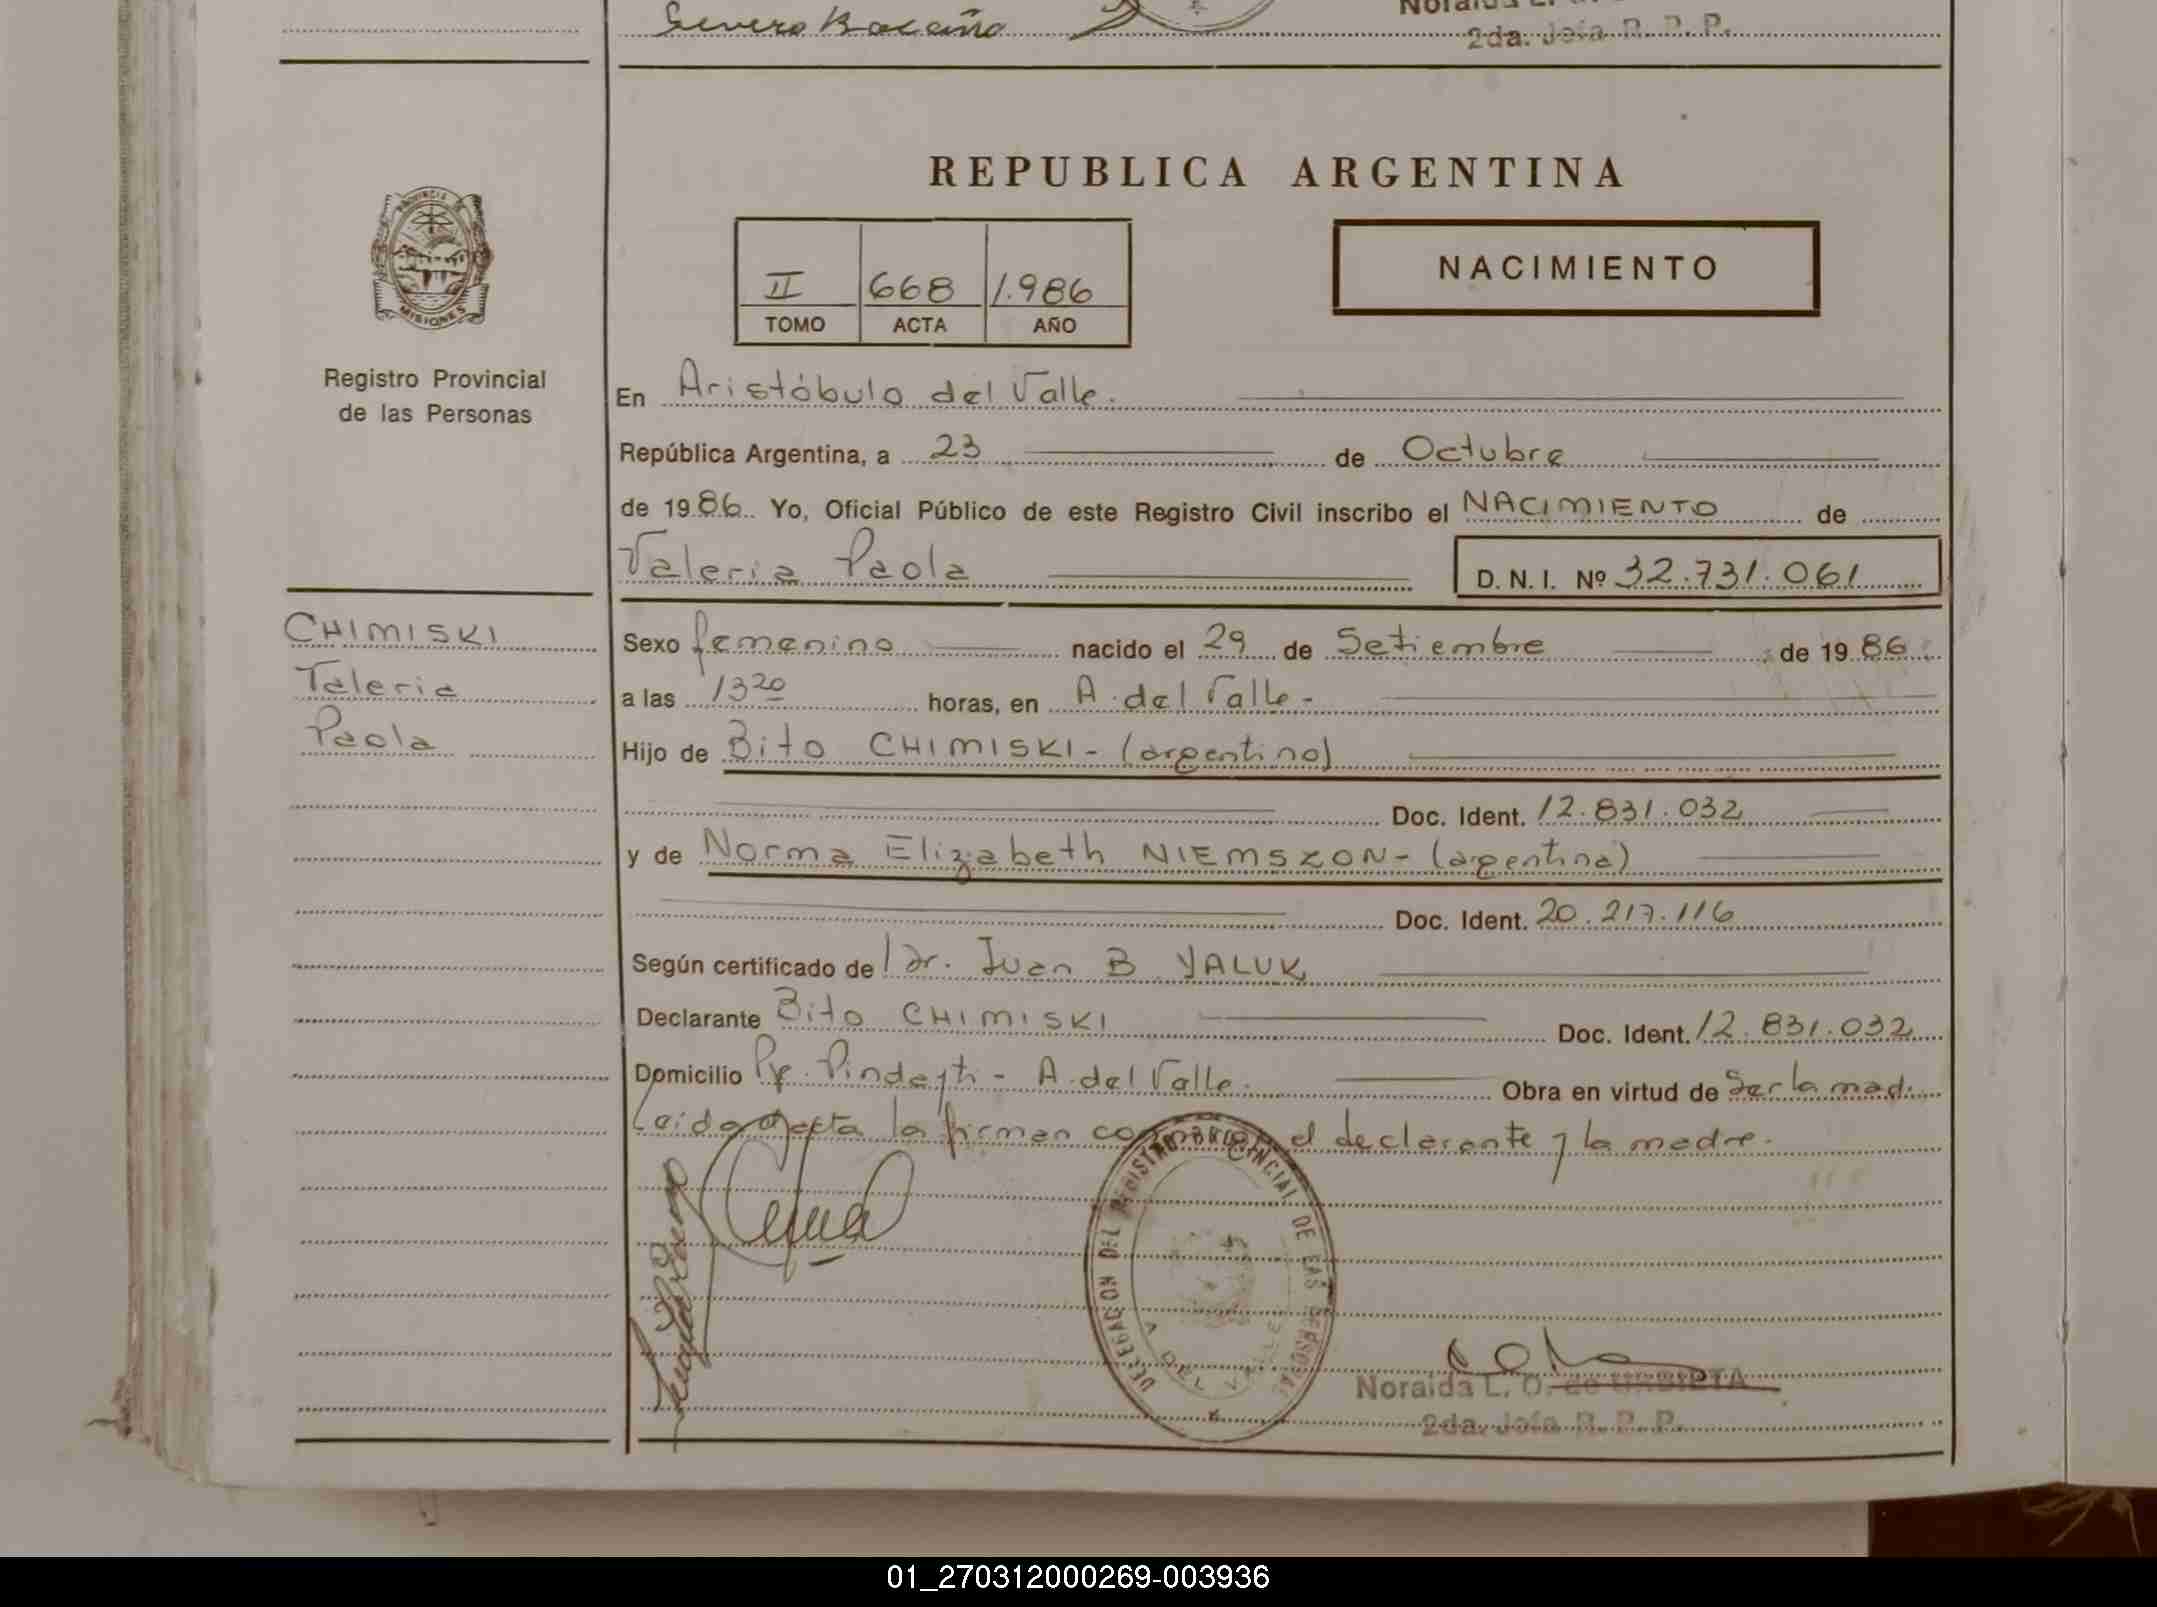 Severo Baceño
Noralda L. O.
2da. Jefa R. P. P.
REPUBLICA ARGENTINA
PROVINCIA DE
MISIONES
II 668 1.986
TOMO ACTA AÑO
NACIMIENTO
Registro Provincial
de las Personas
En Aristóbulo del Valle.
República Argentina, a 23 de Octubre
de 1986. Yo, Oficial Público de este Registro Civil inscribo el NACIMIENTO de
Valeria Paola D. N. I. Nº 32.731.061
CHIMISKI
Valeria
Paola
Sexo femenino nacido el 29 de Setiembre de 1986
a las 13 20 horas, en A. del Valle -
Hijo de Bito CHIMISKI - (argentino)
Doc. Ident. 12.831.032
y de Norma Elizabeth NIEMSZON - (argentina)
Doc. Ident. 20.217.116
Según certificado de Dr. Juan B YALUK
Declarante Bito CHIMISKI Doc. Ident. 12.831.032
Domicilio Pje. Pindayti - A. del Valle. Obra en virtud de Ser la mad.
Leida el acta la firman conmigo el declarante y la madre.
DELEGACION DEL REGISTRO PROVINCIAL DE LAS PERSONAS
A. DEL VALLE
Noralda L. O. de URBIETA
2da. Jefa R. P. P.
01_270312000269-003936